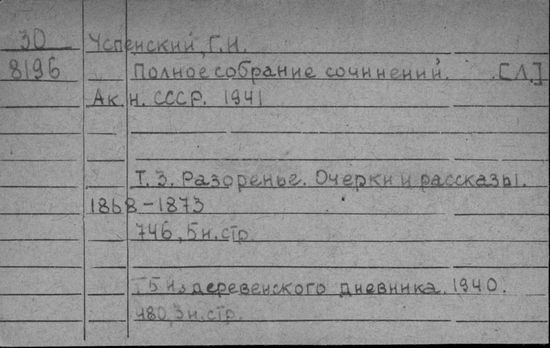 30 Успенский, Г.И.
8196 Полное собрание сочинений. [Л.]
Ак. н. СССР. 1941
Т. 3. Разоренье. Очерки и рассказы.
1868-1873
746, 5 н. стр.
Т 5 Из деревенского дневника. 1940.
480, 3 н. стр.